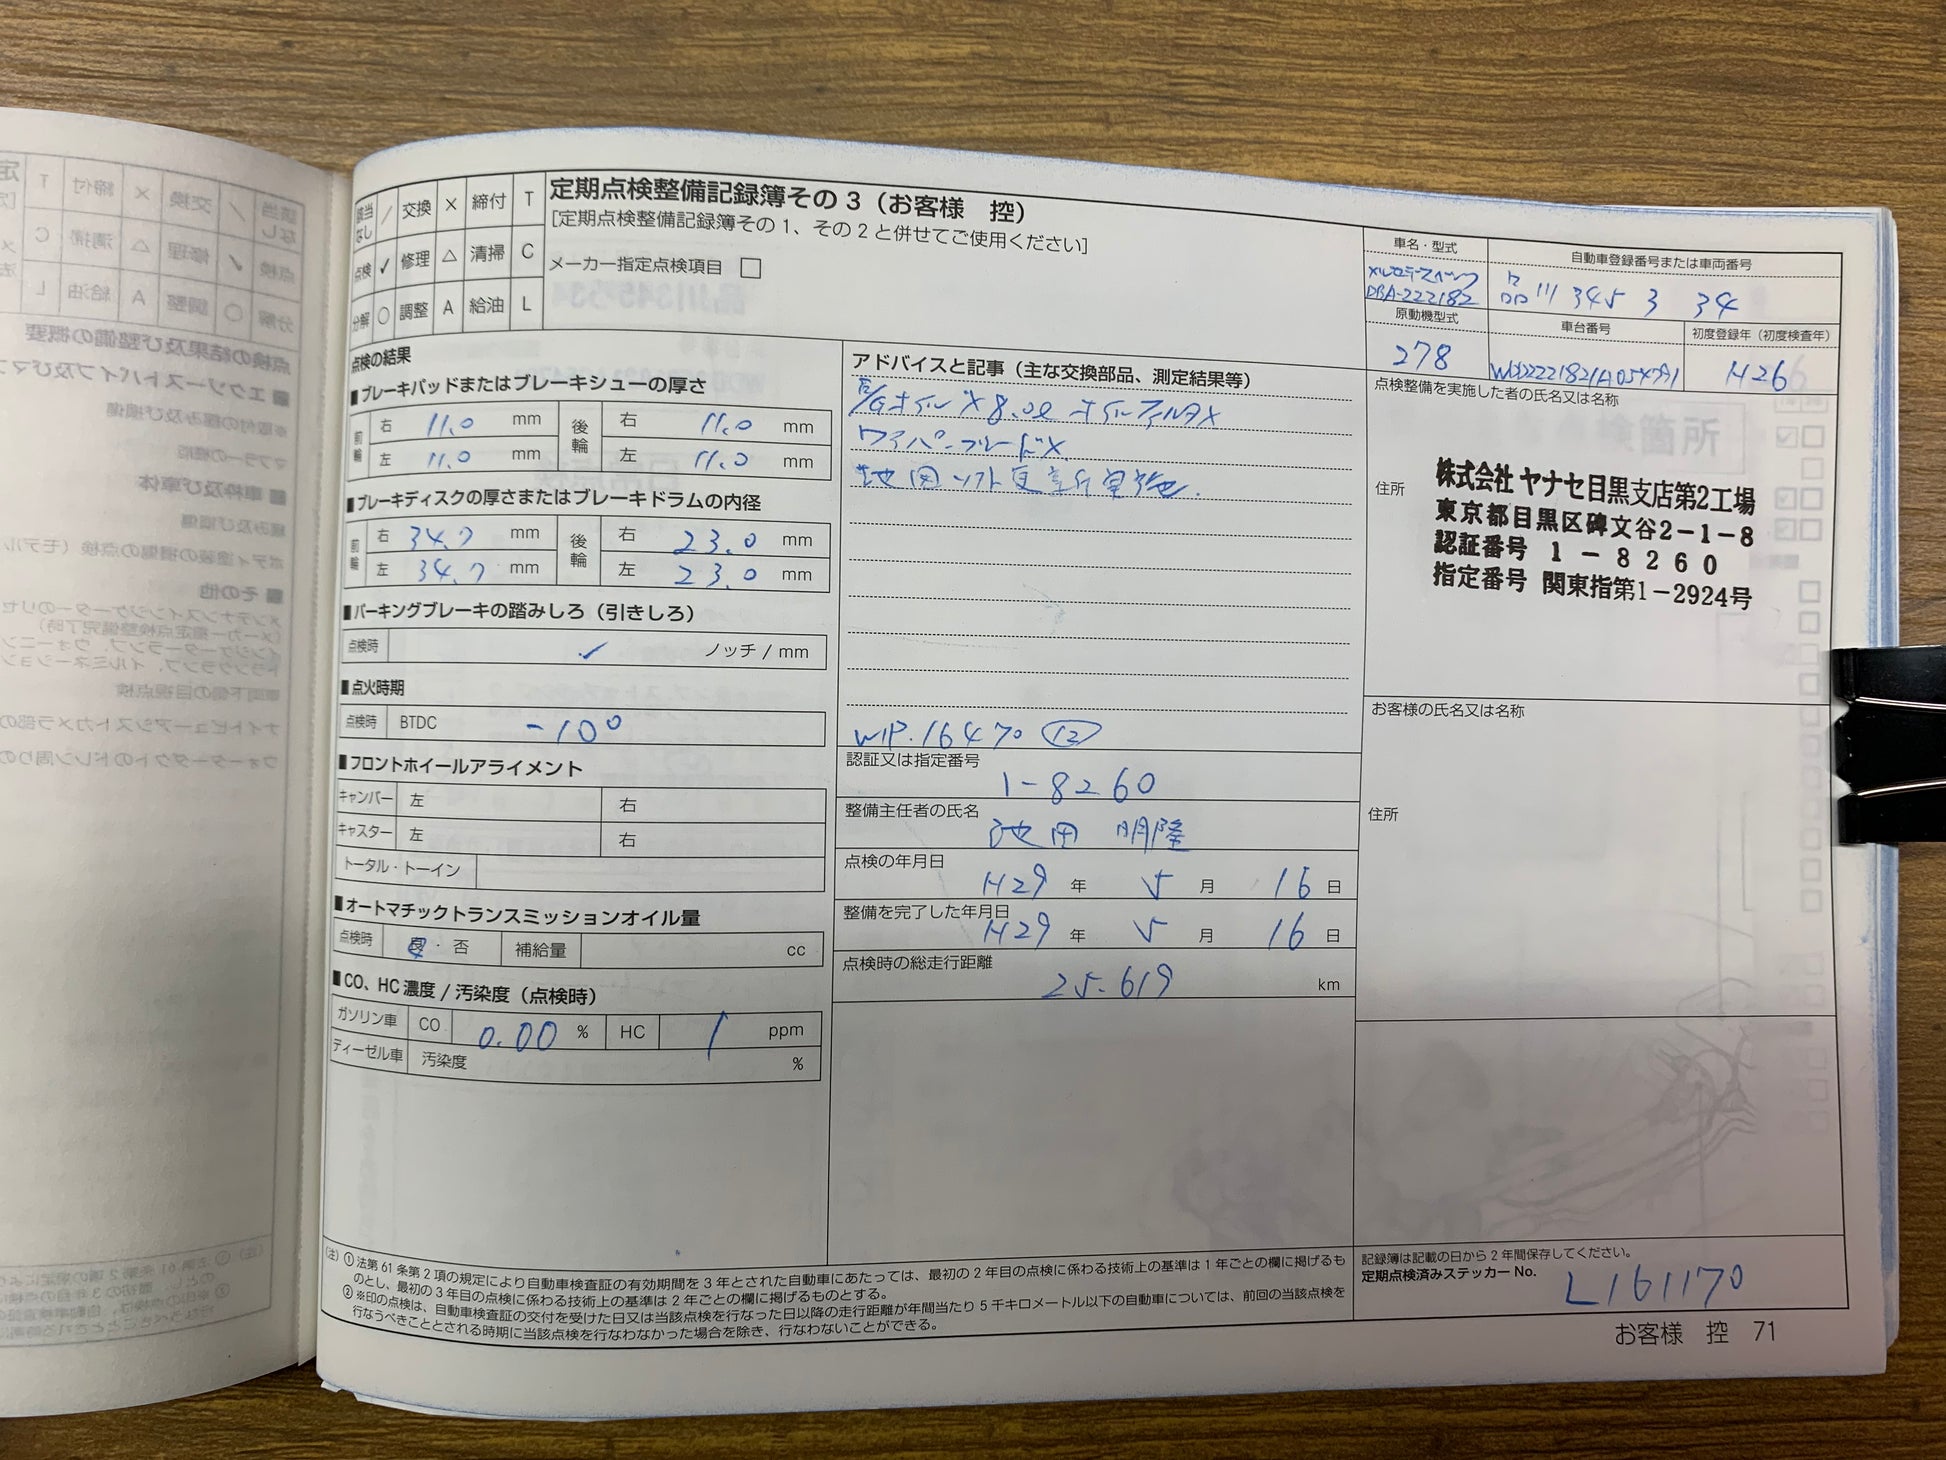 該当なし / 交換 × 締付 T
点検 ✓ 修理 △ 清掃 C
分解 ○ 調整 A 給油 L
定期点検整備記録簿その3（お客様 控）
[定期点検整備記録簿その1、その2と併せてご使用ください]
メーカー指定点検項目 □
車名・型式
メルセデスベンツ
DBA-222182
自動車登録番号または車両番号
品川 345 る 34
原動機型式
278
車台番号
初度登録年（初度検査年）
H26
点検の結果
■ブレーキパッドまたはブレーキシューの厚さ
前輪 右 11.0 mm 後輪 右 11.0 mm
左 11.0 mm 左 11.0 mm
■ブレーキディスクの厚さまたはブレーキドラムの内径
前輪 右 34.7 mm 後輪 右 23.0 mm
左 34.7 mm 左 23.0 mm
■パーキングブレーキの踏みしろ（引きしろ）
点検時 ✓ ノッチ / mm
■点火時期
点検時 BTDC -10°
■フロントホイールアライメント
キャンバー 左 右
キャスター 左 右
トータル・トーイン
■オートマチックトランスミッションオイル量
点検時 良・否 補給量 cc
■CO、HC濃度 / 汚染度（点検時）
ガソリン車 CO 0.00 % HC 1 ppm
ディーゼル車 汚染度 %
アドバイスと記事（主な交換部品、測定結果等）
E/Gオイル× 8.0ℓ オイルフィルタ×
ワイパーブレード×
地図ソフト更新実施.
WIP.16470 ⑫
認証又は指定番号
1-8260
整備主任者の氏名
池田 明隆
点検の年月日
H29 年 5 月 16 日
整備を完了した年月日
H29 年 5 月 16 日
点検時の総走行距離
25.619 km
点検整備を実施した者の氏名又は名称
住所
株式会社 ヤナセ目黒支店第2工場
東京都目黒区碑文谷2-1-8
認証番号 1-8260
指定番号 関東指第1-2924号
お客様の氏名又は名称
住所
（注）①法第61条第2項の規定により自動車検査証の有効期間を3年とされた自動車にあたっては、最初の2年目の点検に係わる技術上の基準は1年ごとの欄に掲げるも
のとし、最初の3年目の点検に係わる技術上の基準は2年ごとの欄に掲げるものとする。
②※印の点検は、自動車検査証の交付を受けた日又は当該点検を行なった日以降の走行距離が年間当たり5千キロメートル以下の自動車については、前回の当該点検を
行なうべきこととされる時期に当該点検を行なわなかった場合を除き、行なわないことができる。
記録簿は記載の日から2年間保存してください。
定期点検済みステッカー No. L161170
お客様 控 71